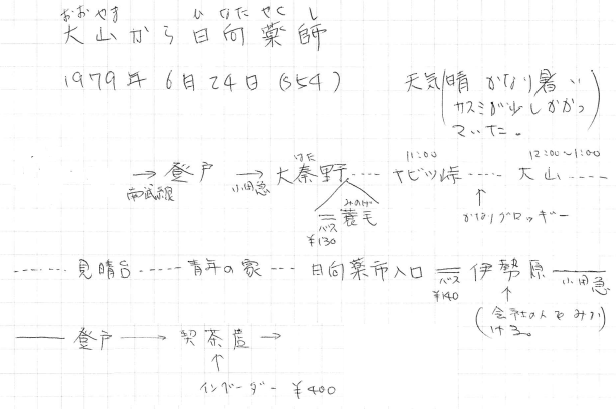 おおやま ひなたやくし
大山から日向薬師
1979年 6月24日 (S54)
天気(晴 かなり暑い
カスミが少しかかっ
ていた。)
→ 登戸 → 大秦野 ····· ヤビツ峠 ····· 大山 ·····
南武線 小田急 はだ 11:00 12:00~1:00
みのげ
= 蓑毛
バス
¥130
↑
かなりグロッキー
······ 見晴台 ····· 青年の家 ··· 日向薬市入口 = 伊勢原 —— 小田急
バス
¥140
↑
(会社の人をみか
ける。)
—— 登戸 → 喫茶 →
↑
インベーダー ¥400